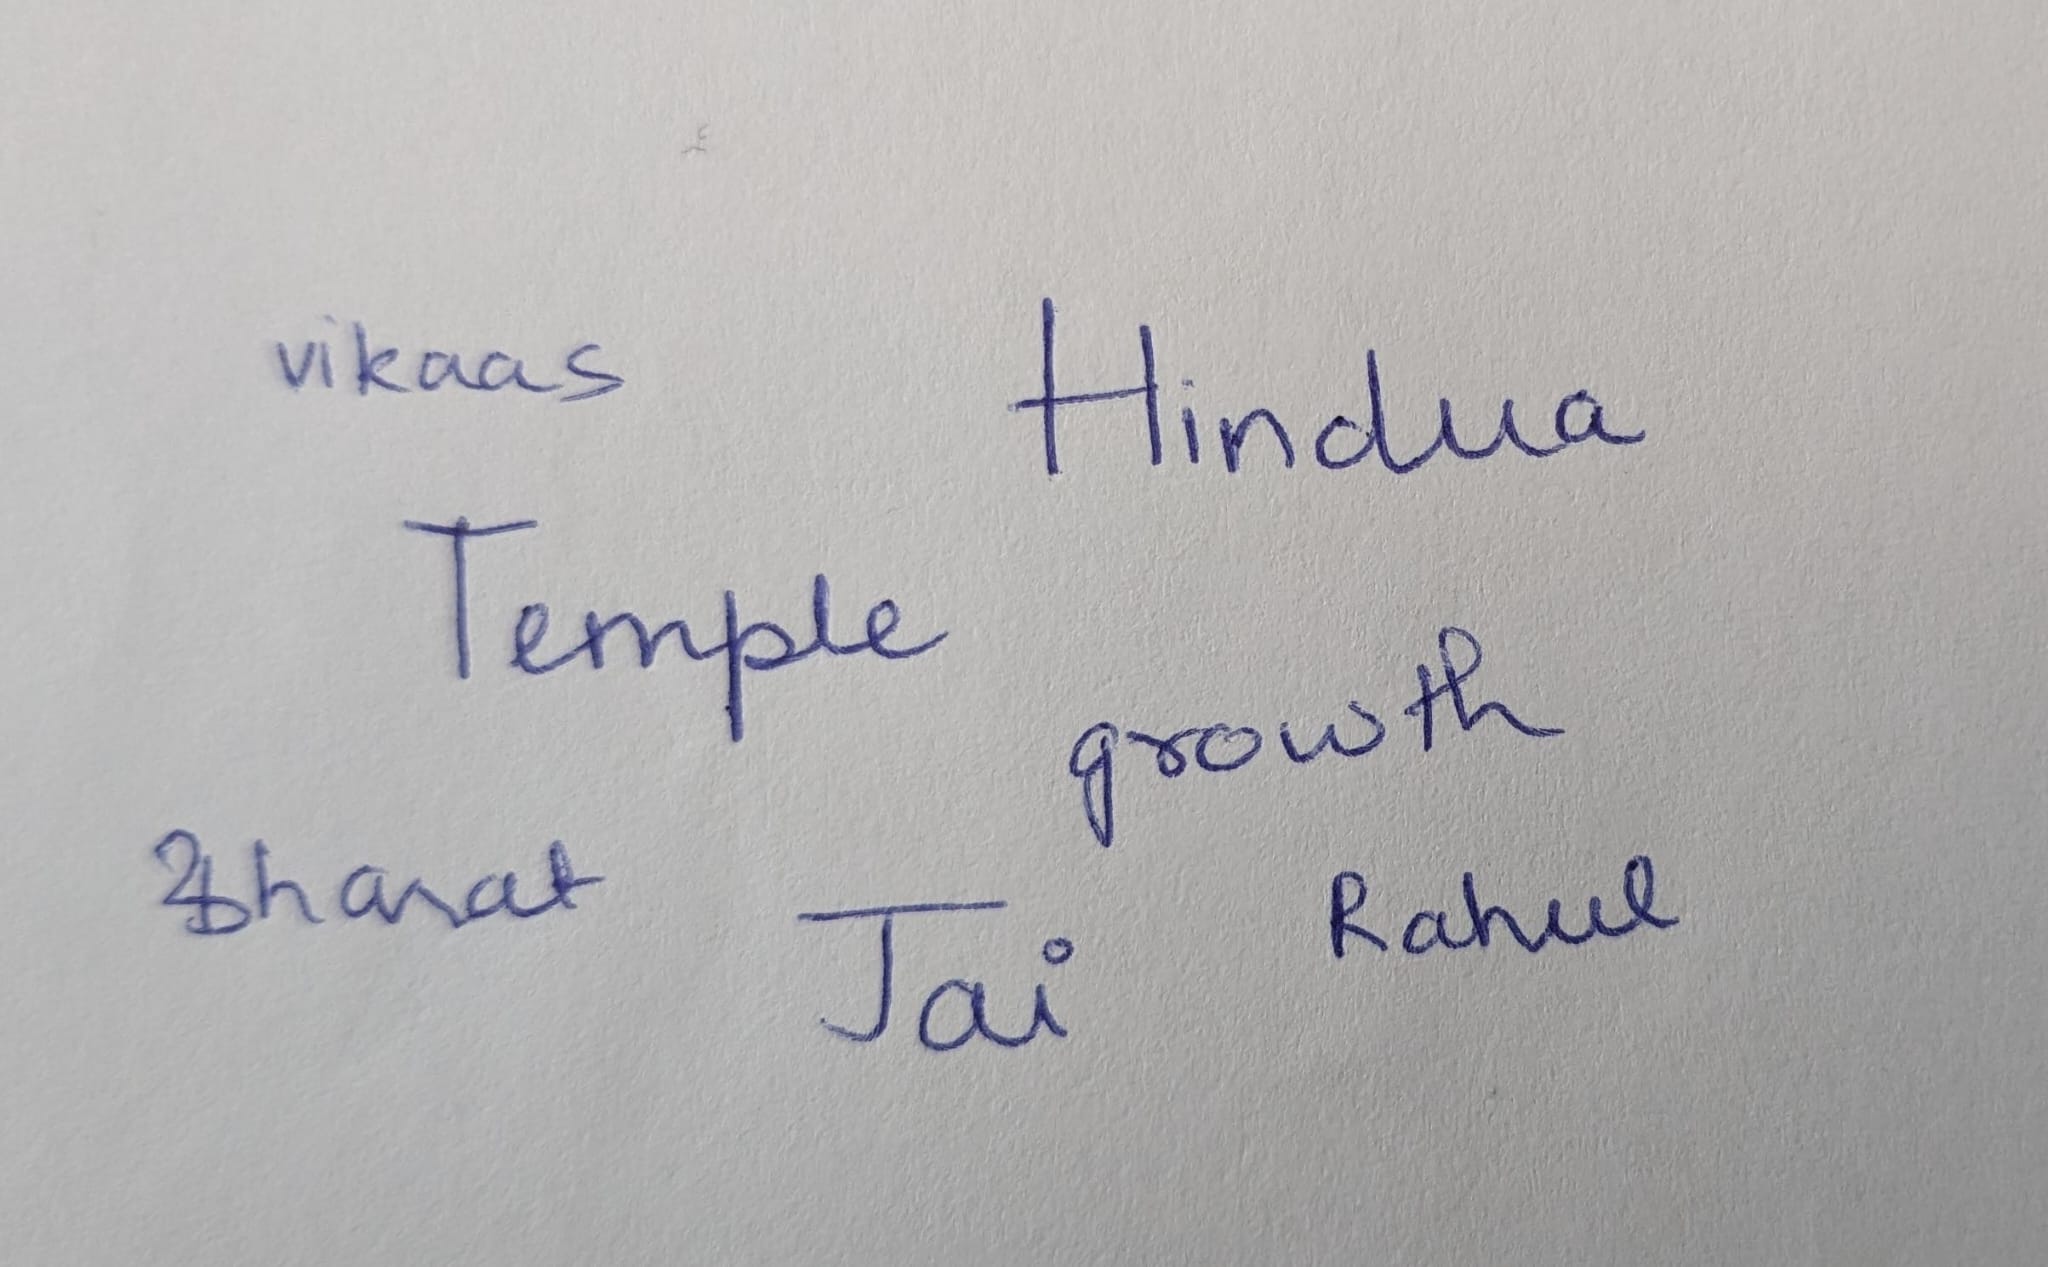 vikaas
Hindua
Temple
growth
Bharat
Jai
Rahul